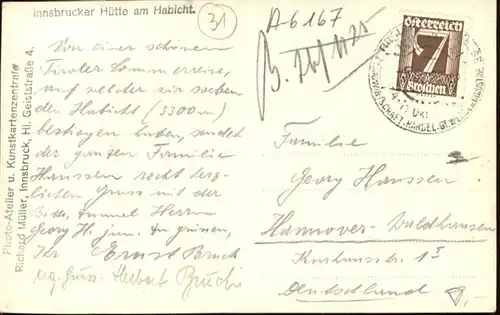 Innsbrucker Hütte am Habicht.
31
A-6167
Photo-Atelier u. Kunstkartenzentrale
Richard Müller, Innsbruck, Hl. Geiststraße 4.
Von einer schönen
Tiroler Sommerreise,
auf welcher wir soeben
den Habicht (3300m)
bestiegen haben, sendet
der ganzen Familie
Hanssen recht herz-
lichen Gruss mit der
Bitte, Herrn
Georg H. jun. zu grüssen,
Ihr Ernst Bruch
Herbert Bruch
Österreich
7
Groschen
Familie
Georg Hanssen
Hannover-Waldhausen
1 I
Deutschland